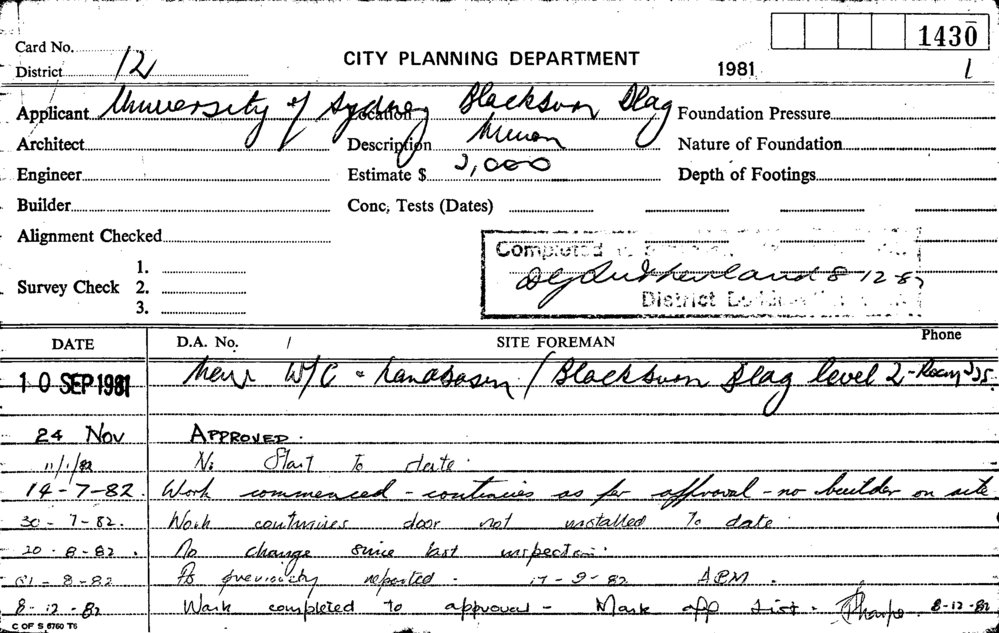 1430
Card No.
CITY PLANNING DEPARTMENT
District 12
1981
1
Applicant University of Sydney Location Blackburn Bldg Foundation Pressure
Architect Description Minor Nature of Foundation
Engineer Estimate $ 2,000 Depth of Footings
Builder Conc, Tests (Dates)
Alignment Checked
Completed
Survey Check 1. 2. 3.
Sutherland 8-12-82
District
DATE D.A. No. / SITE FOREMAN Phone
10 SEP 1981 New W/C & handbasin / Blackburn Bldg level 2 - Room
24 Nov APPROVED.
11/1/82 No Start To date.
14-7-82. Work commenced - continues as per approval - no builder on site
30-7-82. Work continues door not installed To date.
20.8-82. No change since last inspection.
31-8-82 As previously reported. 17-9-82 APM.
8-12-82 Work completed to approval - Mark off List. Tharpe 8-12-82
C OF S 6760 T6